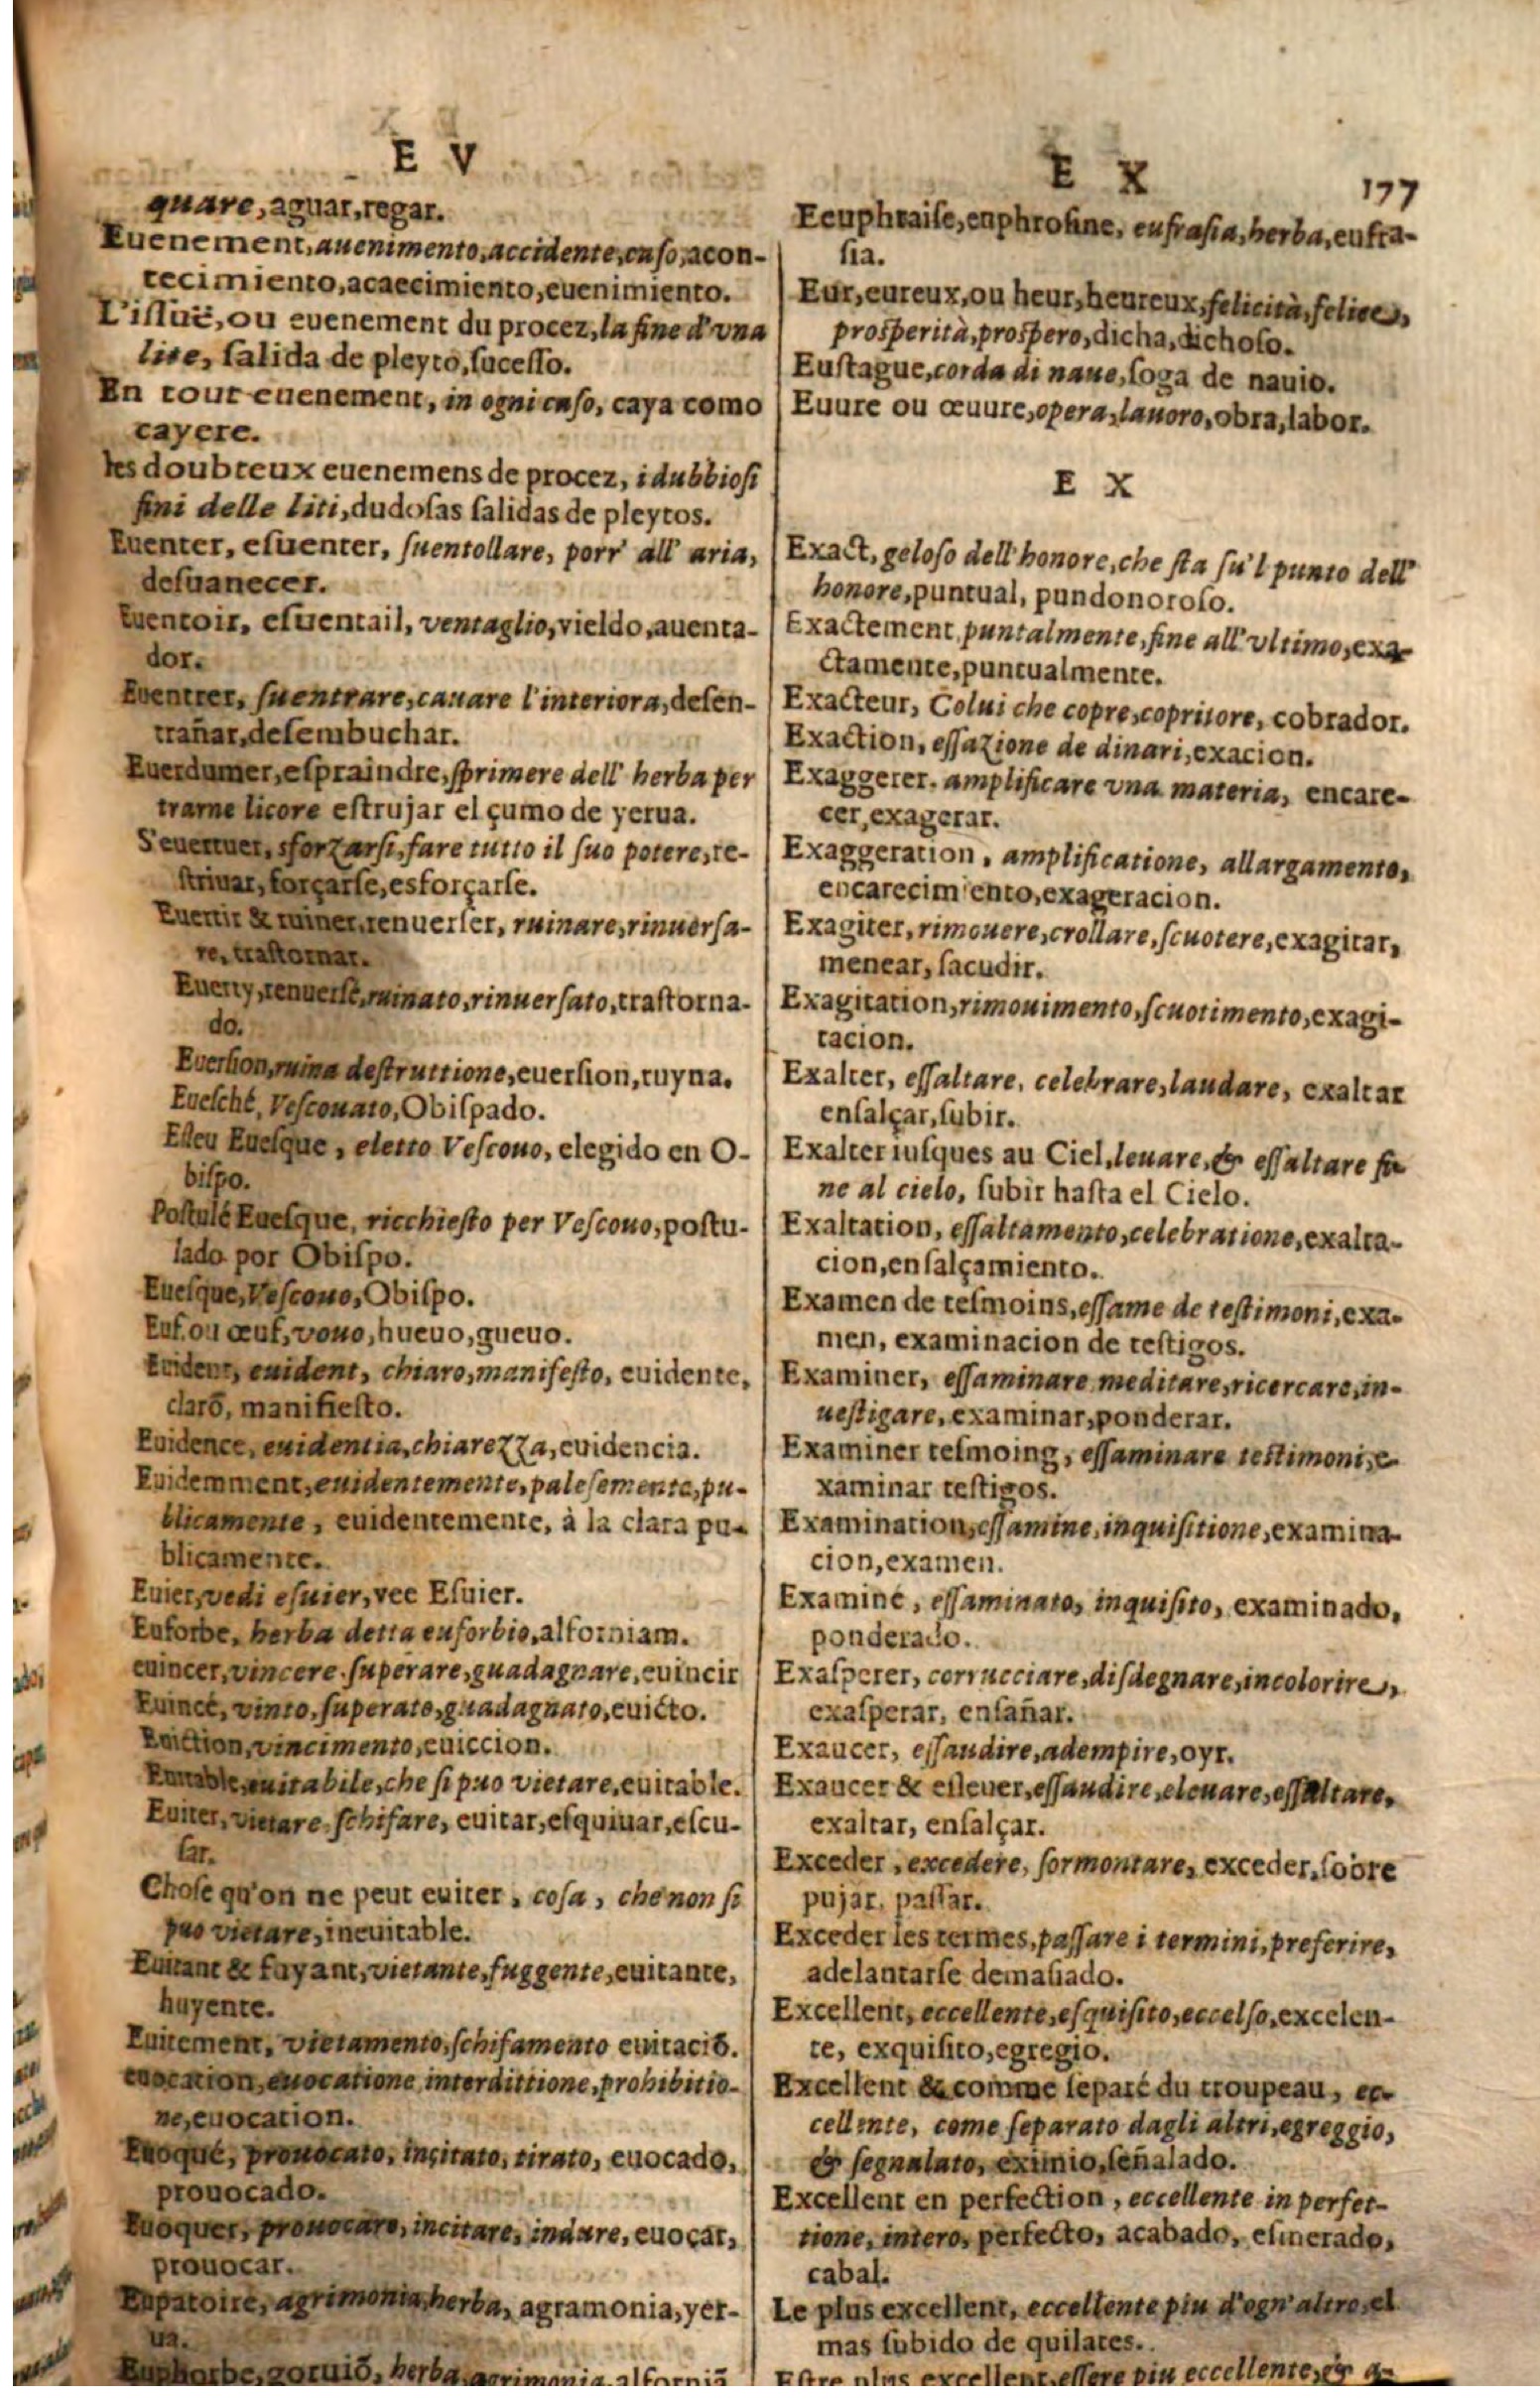 E V
quare, aguar, regar.
Euenement, auenimento, accidente, caſo, acon-
tecimiento, acaecimiento, euenimiento.
L'iſſuë, ou euenement du procez, la fine d'vna
lite, ſalida de pleyto, ſuceſſo.
En tout euenement, in ogni caſo, caya como
cayere.
les doubteux euenemens de procez, i dubbioſi
fini delle liti, dudoſas ſalidas de pleytos.
Euenter, eſuenter, ſuentollare, porr' all' aria,
deſuanecer.
Euentoir, eſuentail, ventaglio, vieldo, auenta-
dor.
Euentrer, ſuentrare, cauare l'interiora, deſen-
trañar, deſembuchar.
Euerdumer, eſpraindre, ſprimere dell' herba per
trarne licore eſtrujar el çumo de yerua.
S'euertuer, sforzarſi, fare tutto il ſuo potere, re-
ſtriuar, forçarſe, esforçarſe.
Euertir & ruiner, renuerſer, ruinare, rinuerſa-
re, traſtornar.
Euerty, renuerſé, ruinato, rinuerſato, traſtorna-
do.
Euerſion, ruina deſtruttione, euerſion, ruyna.
Eueſché, Veſcouato, Obiſpado.
Eſleu Eueſque, eletto Veſcouo, elegido en O-
biſpo.
Poſtulé Eueſque, ricchieſto per Veſcouo, poſtu-
lado por Obiſpo.
Eueſque, Veſcouo, Obiſpo.
Euf ou œuf, vouo, hueuo, gueuo.
Euident, euident, chiaro, manifeſto, euidente,
clarō, manifieſto.
Euidence, euidentia, chiarezza, euidencia.
Euidemment, euidentemente, paleſemente, pu-
blicamente, euidentemente, à la clara pu-
blicamente.
Euier, vedi eſuier, vee Eſuier.
Euforbe, herba detta euforbio, alforniam.
euincer, vincere ſuperare, guadagnare, euincir
Euincé, vinto, ſuperato, guadagnato, euicto.
Euiction, vincimento, euiccion.
Euitable, euitabile, che ſi puo vietare, euitable.
Euiter, vietare ſchifare, euitar, eſquiuar, eſcu-
ſar.
Choſe qu'on ne peut euiter, coſa, che non ſi
puo vietare, ineuitable.
Euitant & fuyant, vietante, fuggente, euitante,
huyente.
Euitement, vietamento, ſchifamento euitaciō.
euocation, euocatione interdittione, prohibitio-
ne, euocation.
Euoqué, prouocato, incitato, tirato, euocado,
prouocado.
Euoquer, prouocare, incitare, indure, euocar,
prouocar.
Eupatoire, agrimonia, herba, agramonia, yer-
ua.
Euphorbe, goruiō, herba, agrimonia, alforniā
E X
177
Eeuphraiſe, enphroſine, eufraſia, herba, eufra-
ſia.
Eur, eureux, ou heur, heureux, felicità, felice,
proſperità, proſpero, dicha, dichoſo.
Euſtague, corda di naue, ſoga de nauio.
Euure ou œuure, opera, lauoro, obra, labor.
E X
Exact, geloſo dell' honore, che ſta ſu'l punto dell'
honore, puntual, pundonoroſo.
Exactement puntalmente, fine all' vltimo, exa-
ctamente, puntualmente.
Exacteur, Colui che copre, copritore, cobrador.
Exaction, eſſazione de dinari, exacion.
Exaggerer. amplificare vna materia, encare-
cer, exagerar.
Exaggeration, amplificatione, allargamento,
encarecimiento, exageracion.
Exagiter, rimouere, crollare, ſcuotere, exagitar,
menear, ſacudir.
Exagitation, rimouimento, ſcuotimento, exagi-
tacion.
Exalter, eſſaltare, celebrare, laudare, exaltar
enſalçar, ſubir.
Exalter iuſques au Ciel, leuare, & eſſaltare fi-
ne al cielo, ſubir haſta el Cielo.
Exaltation, eſſaltamento, celebratione, exalta-
cion, enſalçamiento.
Examen de teſmoins, eſſame de teſtimoni, exa-
men, examinacion de teſtigos.
Examiner, eſſaminare meditare, ricercare, in-
ueſtigare, examinar, ponderar.
Examiner teſmoing, eſſaminare teſtimoni, e-
xaminar teſtigos.
Examination, eſſamine, inquiſitione, examina-
cion, examen.
Examiné, eſſaminato, inquiſito, examinado,
ponderado.
Exaſperer, corrucciare, diſdegnare, incolorire,
exaſperar, enſañar.
Exaucer, eſſaudire, adempire, oyr.
Exaucer & eſleuer, eſſaudire, eleuare, eſſaltare,
exaltar, enſalçar.
Exceder, excedere, ſormontare, exceder, ſobre
pujar, paſſar.
Exceder les termes, paſſare i termini, preferire,
adelantarſe demaſiado.
Excellent, eccellente, eſquiſito, eccelſo, excelen-
te, exquiſito, egregio.
Excellent & comme ſeparé du troupeau, ec-
cellente, come ſeparato dagli altri, egreggio,
& ſegnalato, eximio, ſeñalado.
Excellent en perfection, eccellente in perfet-
tione, intero, perfecto, acabado, eſmerado,
cabal.
Le plus excellent, eccellente piu d'ogn' altro, el
mas ſubido de quilates.
Eſtre plus excellent, eſſere piu eccellente, & a-